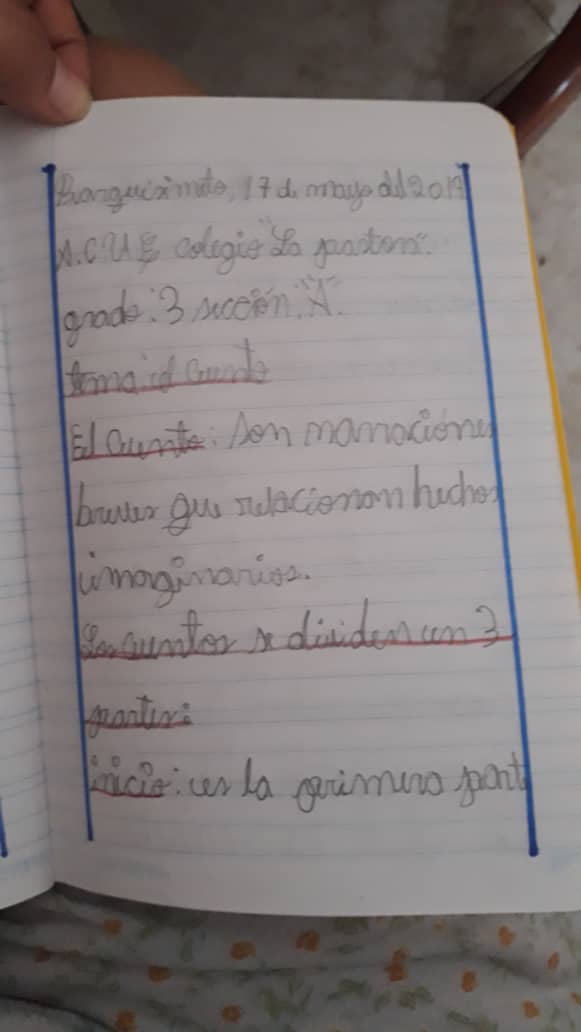 Barquisimeto, 17 de mayo del 2019
A.C.U.E colegio "La pastora".
grado: 3 sección: "A".
tema: el cuento
El cuento: son narraciones
breves que relacionan hechos
imaginarios.
Los cuentos se dividen en 3
partes:
inicio: es la primera part